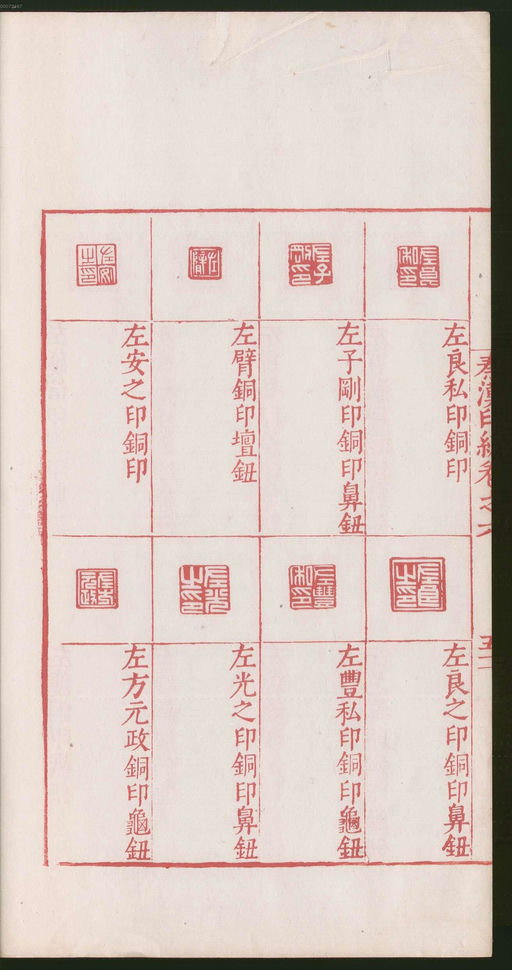 左良私印銅印
左子剛印銅印鼻鈕
左臂銅印壇鈕
左安之印銅印
左良之印銅印鼻鈕
左豐私印銅印龜鈕
左光之印銅印鼻鈕
左方元政銅印龜鈕